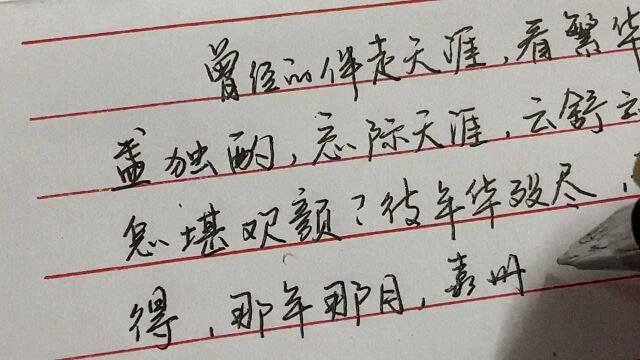 曾经的伴走天涯，看繁华
盏独酌，忘际天涯，云舒云
怎堪欢颜？待年华殁尽，
得，那年那月，嘉州